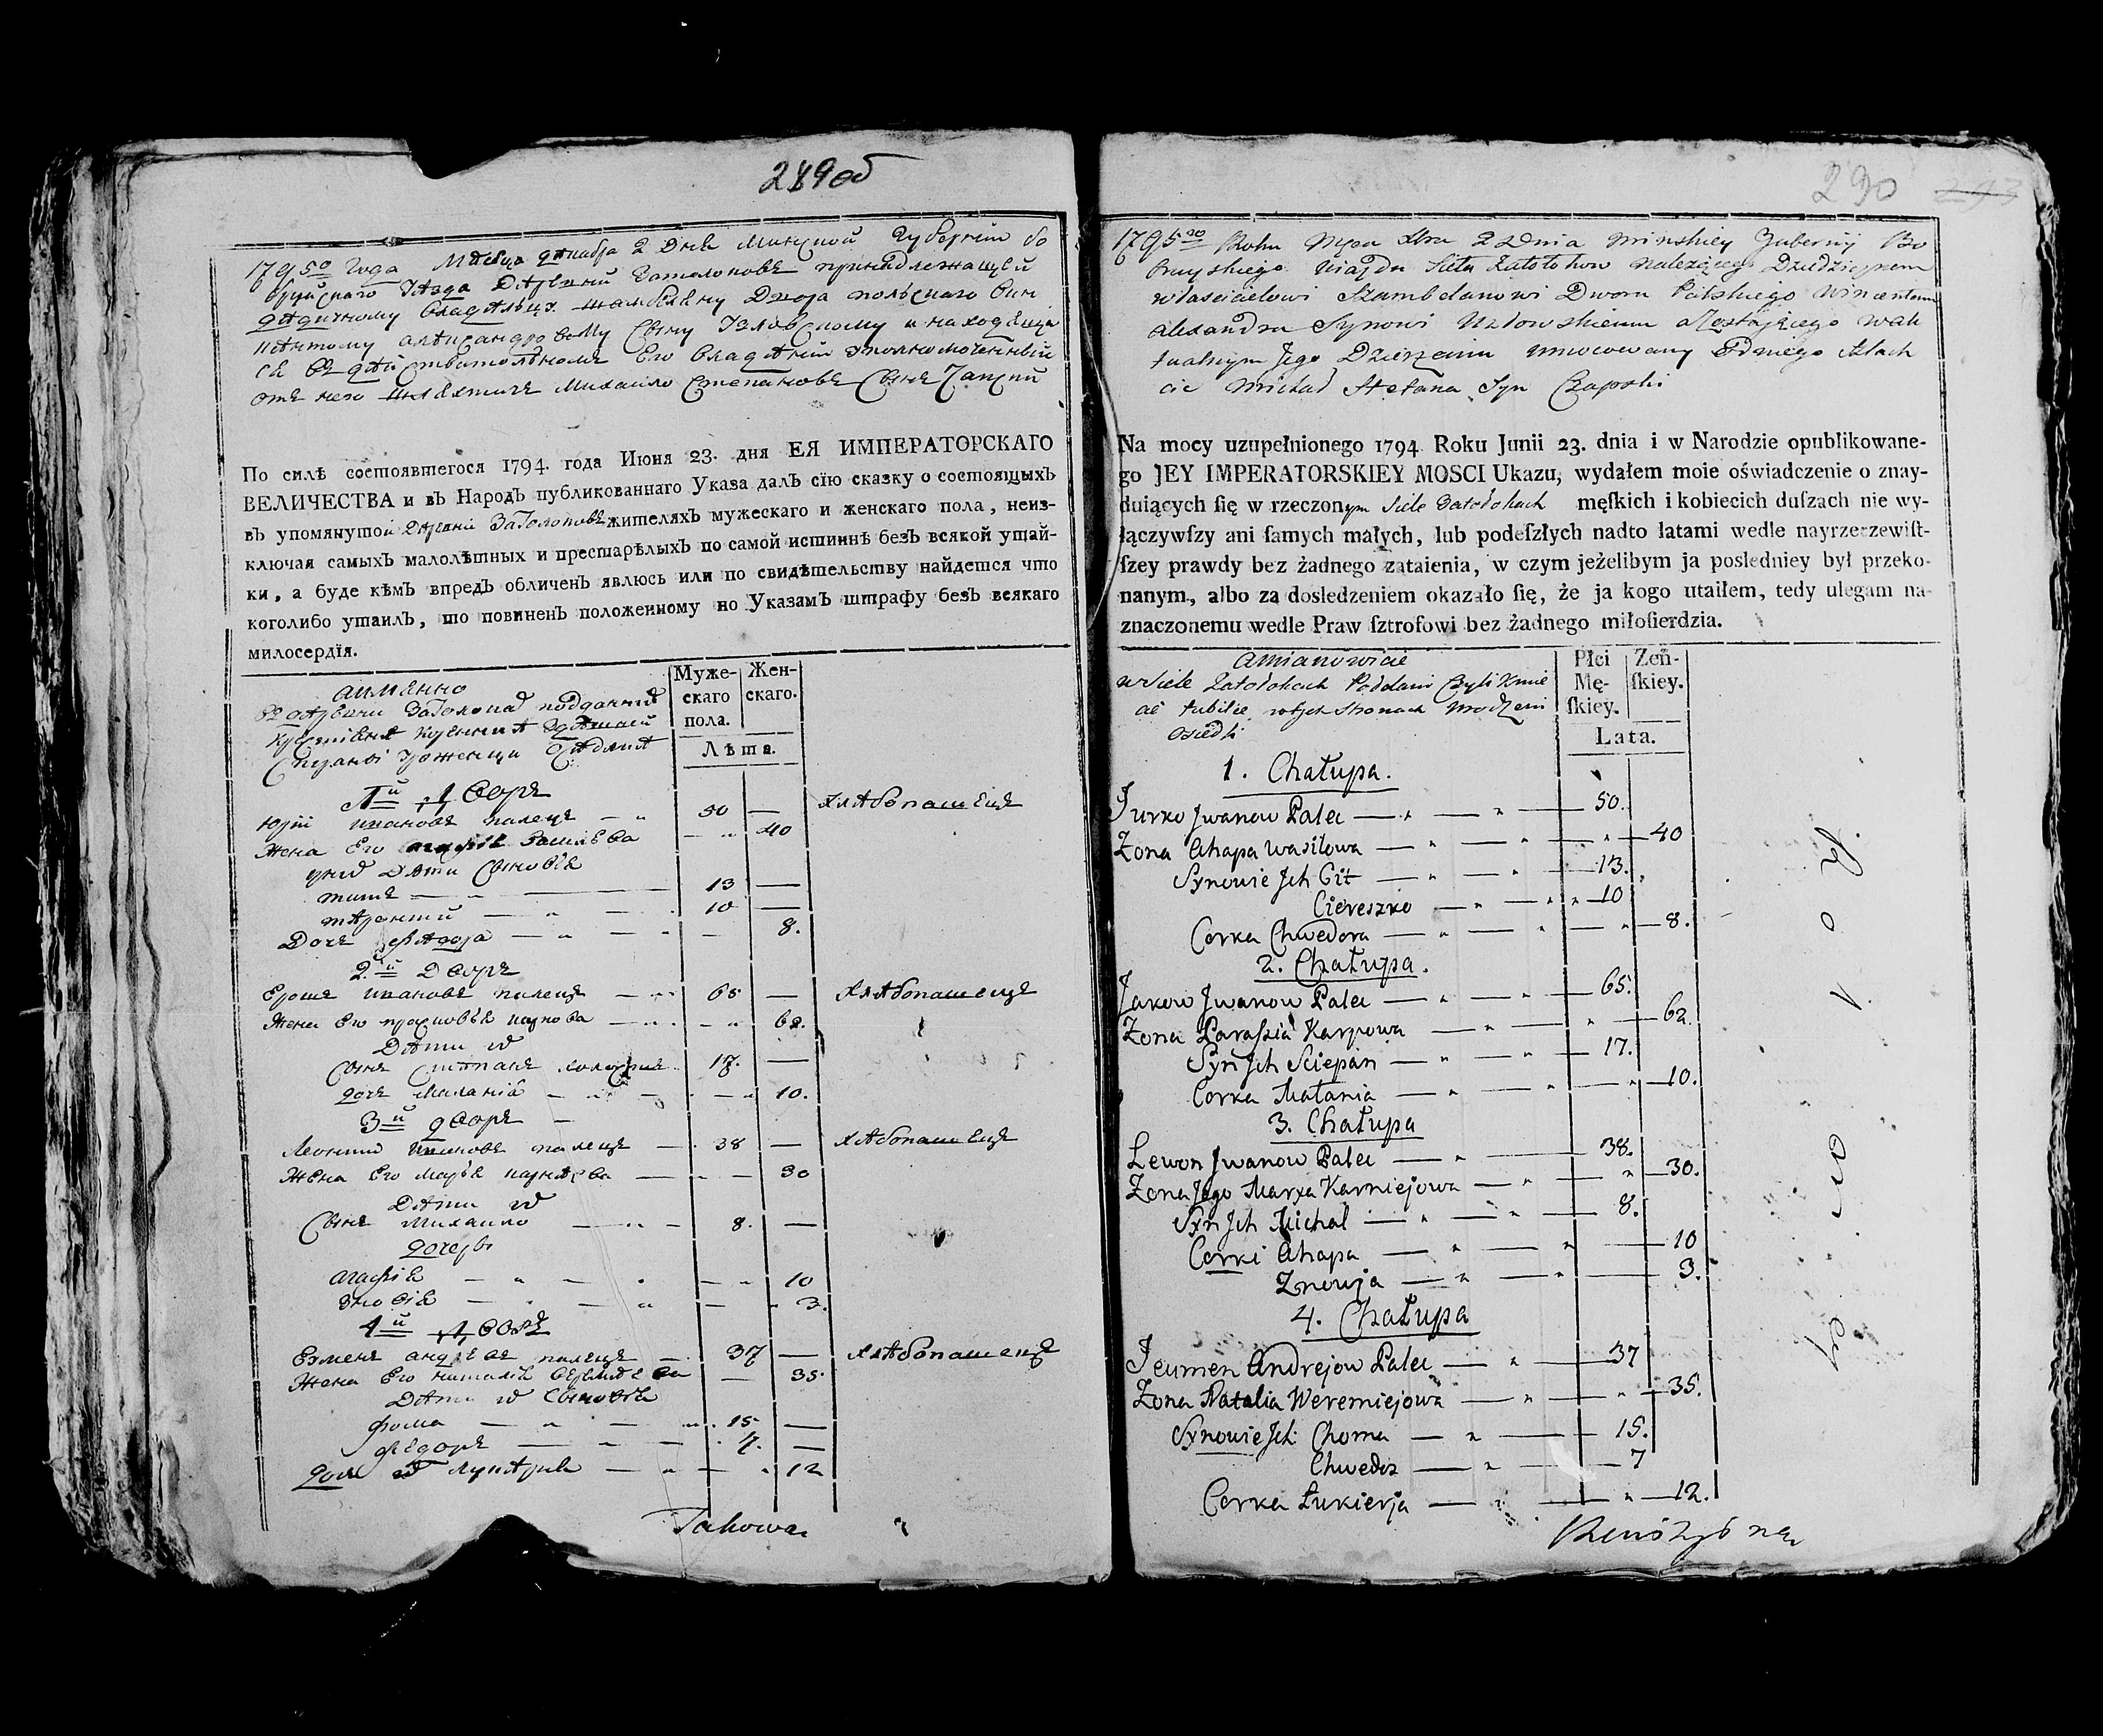 289об
1795го Года Месяца декабря 2 Дня Минской Губернии бо
бруйскаго уезда Деревни Затолоковъ принадлежащей
дедичному владельцу шамбеляну Двора польскаго Вин
центому александровому сыну
въ действителномъ Его владении уполномоченный
отъ него шляхтичъ Михайло Степановъ Сынъ Чапский
По силѣ состоявшегося 1794. года Июня 23. дня ЕЯ ИМПЕРАТОРСКАГО
ВЕЛИЧЕСТВА и въ Народъ публикованнаго Указа далъ сїю сказку о состоящыхъ
въ упомянутой Деревни Затолоковъ жителяхъ мужескаго и женскаго пола, неиз-
ключая самыхъ малолѣтныхъ и престарѣлыхъ по самой истиннѣ безъ всякой утай-
ки, а буде кѣмъ впредъ обличенъ явлюсь или по свидѣтельству найдется что
коголибо утаилъ, то повиненъ положенному по Указамъ штрафу безъ всякаго
милосердїя.
аименно
въ деревни Затолока подданнии
Муже-
скаго
пола.
Жен-
скаго.
Лѣта.
1й дворъ
Юрій ивановъ палецъ — " 50 — хлѣбопашецъ
Жена Его агафія Василева — " 40
уних дети Сыновья
титъ — " — 13 —
терентий — " — 10 —
Дочь федора — " — " — 8.
2.й дворъ
Ерошъ ивановъ палецъ — " 65 — хлѣбопашецъ
Жена Его прасковья карпова — " — " 62.
Дети их
Сынъ степанъ холостъ 17. —
дочь Маланія — " — " 10.
3й дворъ —
Леонтий ивановъ палецъ — 38 — хлѣбопашецъ
Жена Его марья карнеева — " — 30
Дети их
Сынъ михайло — " — 8. —
дочери
агафія — " — " — " 10
зновія — " — " — " 3.
4й дворъ
Евменъ андреевъ палецъ — 37 — хлѣбопашецъ
Жена Его наталія веремеева — 35.
Дети их Сыновья
фома — " — " 15 —
федоръ — " — 7. —
дочь их лукерія — " — " 12
Takowa
290 293
1795go Roku Mca Xbra 2 Dnia Minskiey Gubernij Bo
bruyskiego Ujazdu Sieła Zatołokow należącego Dziedzicznemu
własicielowi Szambelanowi Dworu Polskiego Wincentemu
Alexandra Synowi
tualnym Jego Dzierzeniu umocowany Od niego Szlach
cic Michał Stefana Syn Czapski
Na mocy uzupełnionego 1794 Roku Junii 23. dnia i w Narodzie opublikowane-
go JEY IMPERATORSKIEY MOSCI Ukazu, wydałem moie oświadczenie o znay-
duiących ſię w rzeczonym Siele Zatołokach męſkich i kobiecich duſzach nie wy-
łączywſzy ani ſamych małych, lub podeſzłych nadto latami wedle nayrzeczewiſt-
ſzey prawdy bez żadnego zataienia, w czym jeżelibym ja posledniey był przeko-
nanym, albo za dosledzeniem okazało ſię, że ja kogo utaiłem, tedy ulegam na-
znaczonemu wedle Praw ſztrofowi bez żadnego miłoſierdzia.
Amianowicie
w Siele Zatołokach Poddani Czyli Kmie
cie tubilce w tych stronach urodzeni
Osiedli
Płci
Mę-
ſkiey.
Żeń-
ſkiey.
Lata.
1. Chałupa.
Jurko Jwanow Palec — " — " — 50.
Zona Ahapa Wasilowa — " — " — " — 40
Synowie Jch Cit — " — " — 13.
Ciereszko — " — " " — 10
Corka Chwedora — " — " — " — 8.
2. Chałupa.
Jarow Jwanow Palec — " — " — 65.
Zona Paraszia Karpowa — " — " — 62.
Syn Jch Sciepan — " — " — 17.
Corka Małania — " — " — " — 10.
3. Chałupa
Lewon Jwanow Palec — " — 38.
Zona Jego Marya Karniejowa — " — " — 30.
Syn Jch Michał — " — " — 8.
Corki Ahapa — " — " — 10
Znowja — " — " — 3.
4. Chałupa
Jeumen Andrejow Palec — " — 37
Zona Natalia Weremiejowa — " — " — 35.
Synowie Jch: Choma — " — 15.
Chwedor — " — 7
Corka Łukierja — " — " — 12.